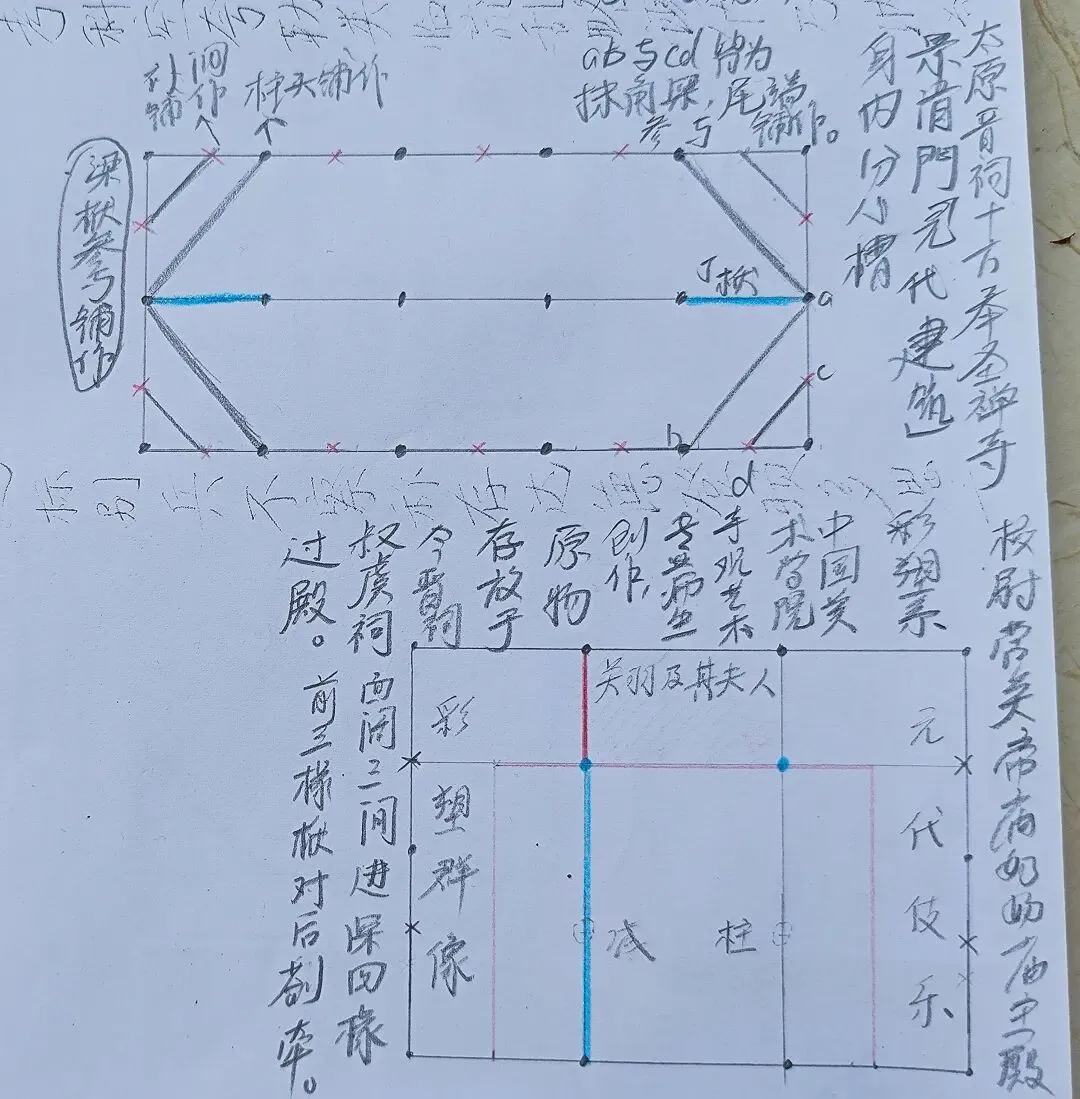 太原晋祠十方奉圣禅寺
景清門〔元代建筑〕
身内分小槽
ab与cd 皆为
抹角梁，尾端
参与 铺作。
柱头铺作
补间
铺作
梁栿参与铺作
丁栿
a
c
b
d
校尉营关帝庙奶奶庙主殿
彩塑系
中国美
术学院
手观艺术
专业师生
创作，
原物
存放于
今晋祠
叔虞祠
过殿。
面阔三间进深四椽
前三椽栿对后劄牵。
关羽及其夫人
彩塑群像
元代伎乐
减柱